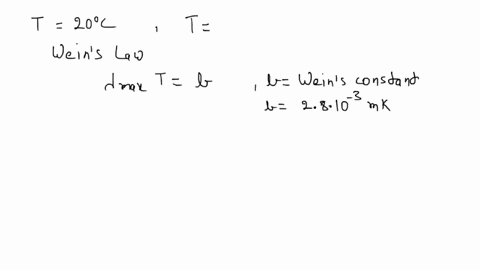 T = 20°C , T =
Wein's Law
λmax T = b , b = Wein's constant
b = 2.8·10⁻³ mK